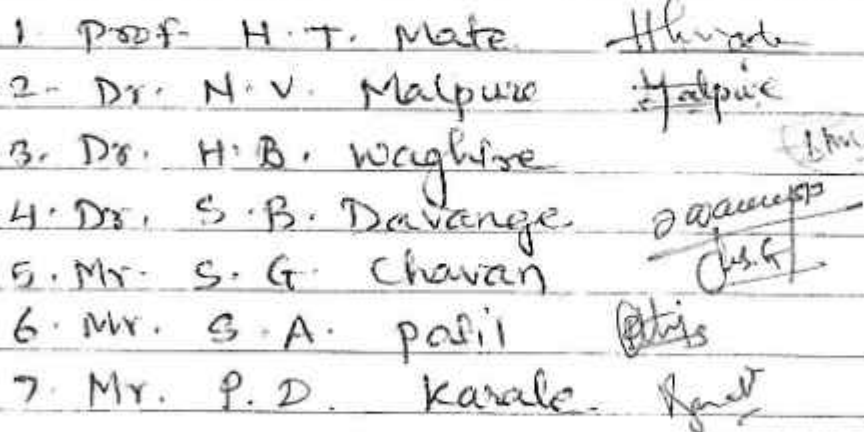 1. Prof. H. T. Mate
2. Dr. N. V. Malpure Malpure
3. Dr. H. B. Waghire
4. Dr. S. B. Davange
5. Mr. S. G. Chavan
6. Mr. S. A. Patil
7. Mr. P. D. Karale.